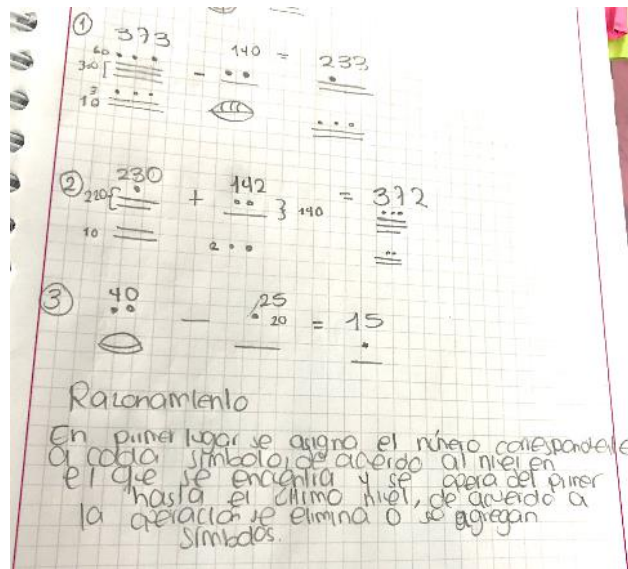 ① 373 140 = 233
60
300 [ -
3
10
② 230 142 = 372
220 { + } 140
10 2
③ 40 25
20
— = 15
Razonamiento
En primer lugar se asigna el número correspondiente
a cada símbolo, de acuerdo al nivel en
el que se encuentra y se opera del primer
hasta el último nivel, de acuerdo a
la operación se elimina o se agregan
símbolos.